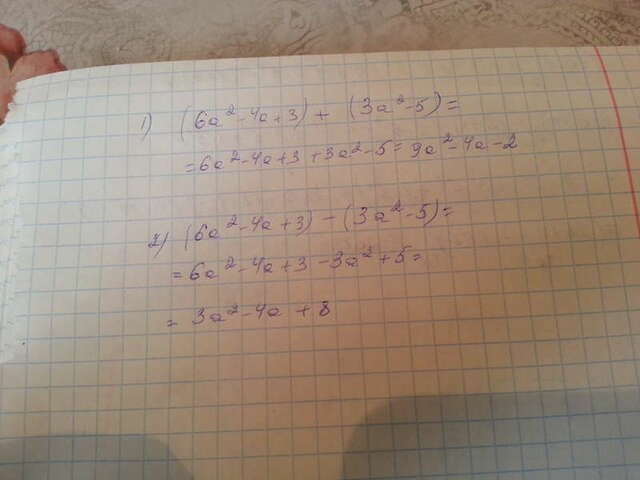 1) (6a²-4a+3)+(3a²-5)=
=6a²-4a+3+3a²-5=9a²-4a-2
2) (6a²-4a+3)-(3a²-5)=
=6a²-4a+3-3a²+5=
=3a²-4a+8